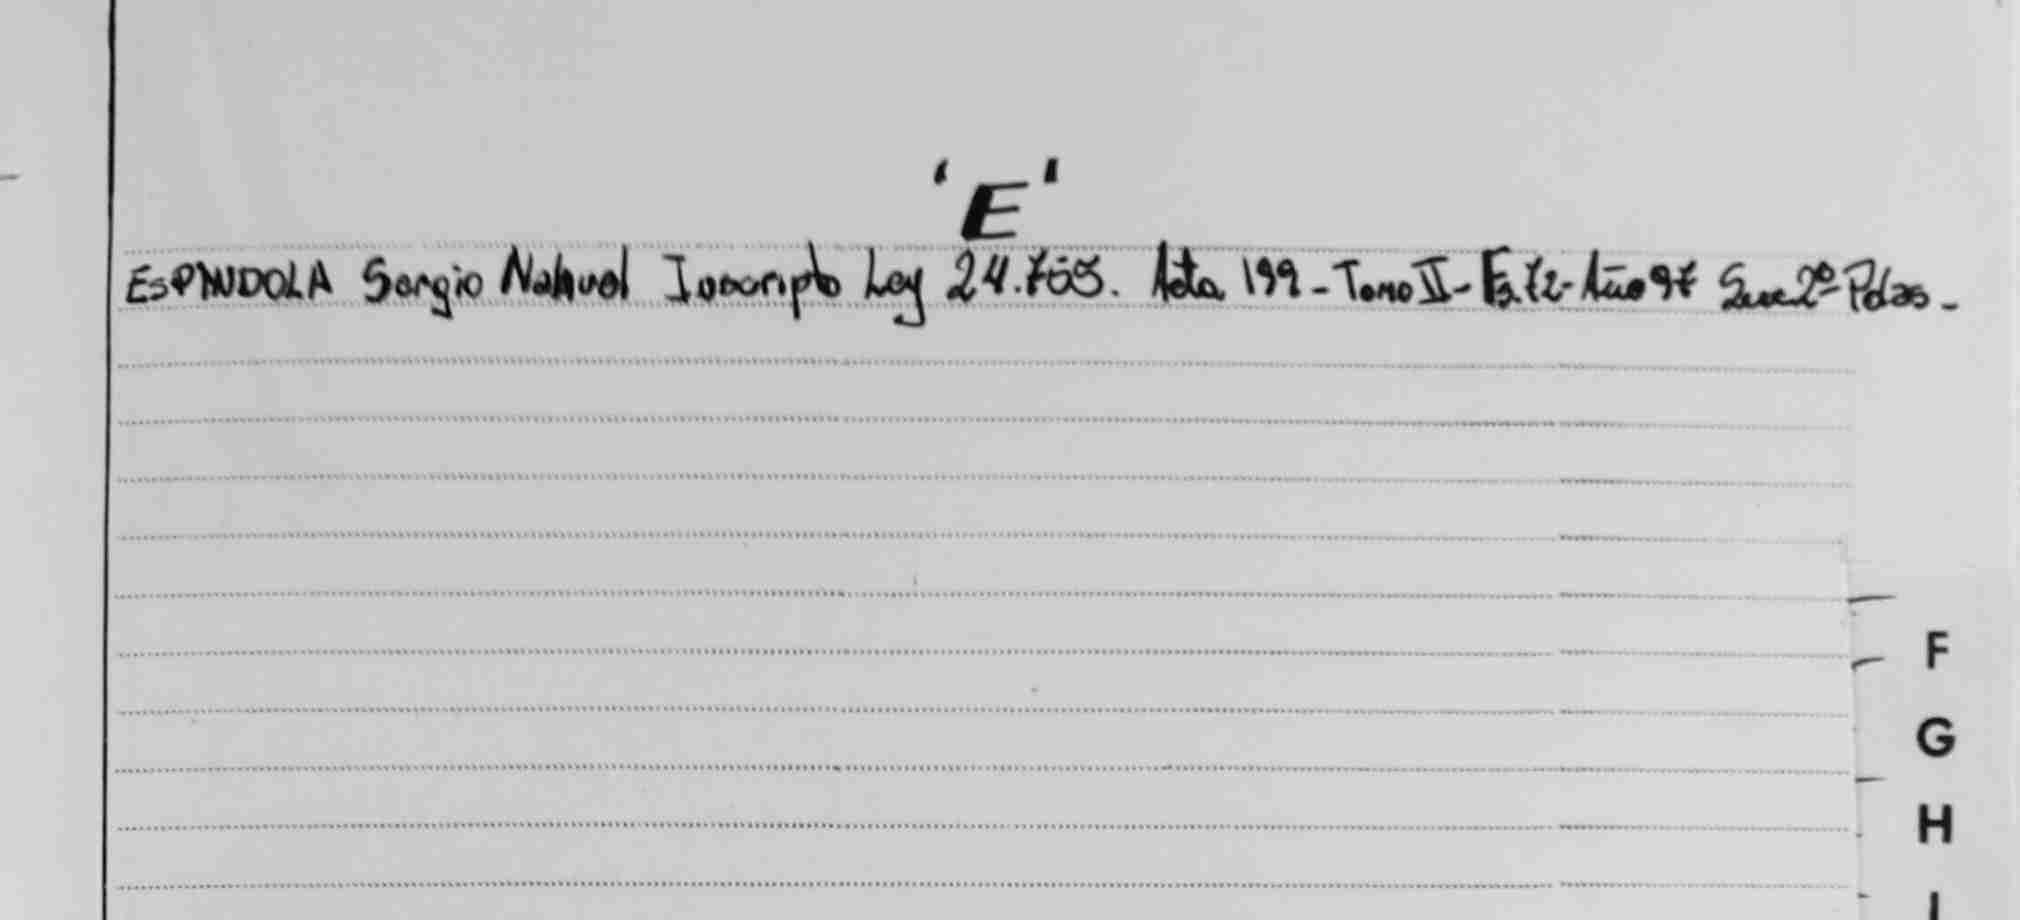 'E'
ESPINDOLA Sergio Nahuel Inscripto Ley 24.755. Acta 199 - Tomo II - Fs. 72 - Año 97 Secc 2º Pdas -
F
G
H
I